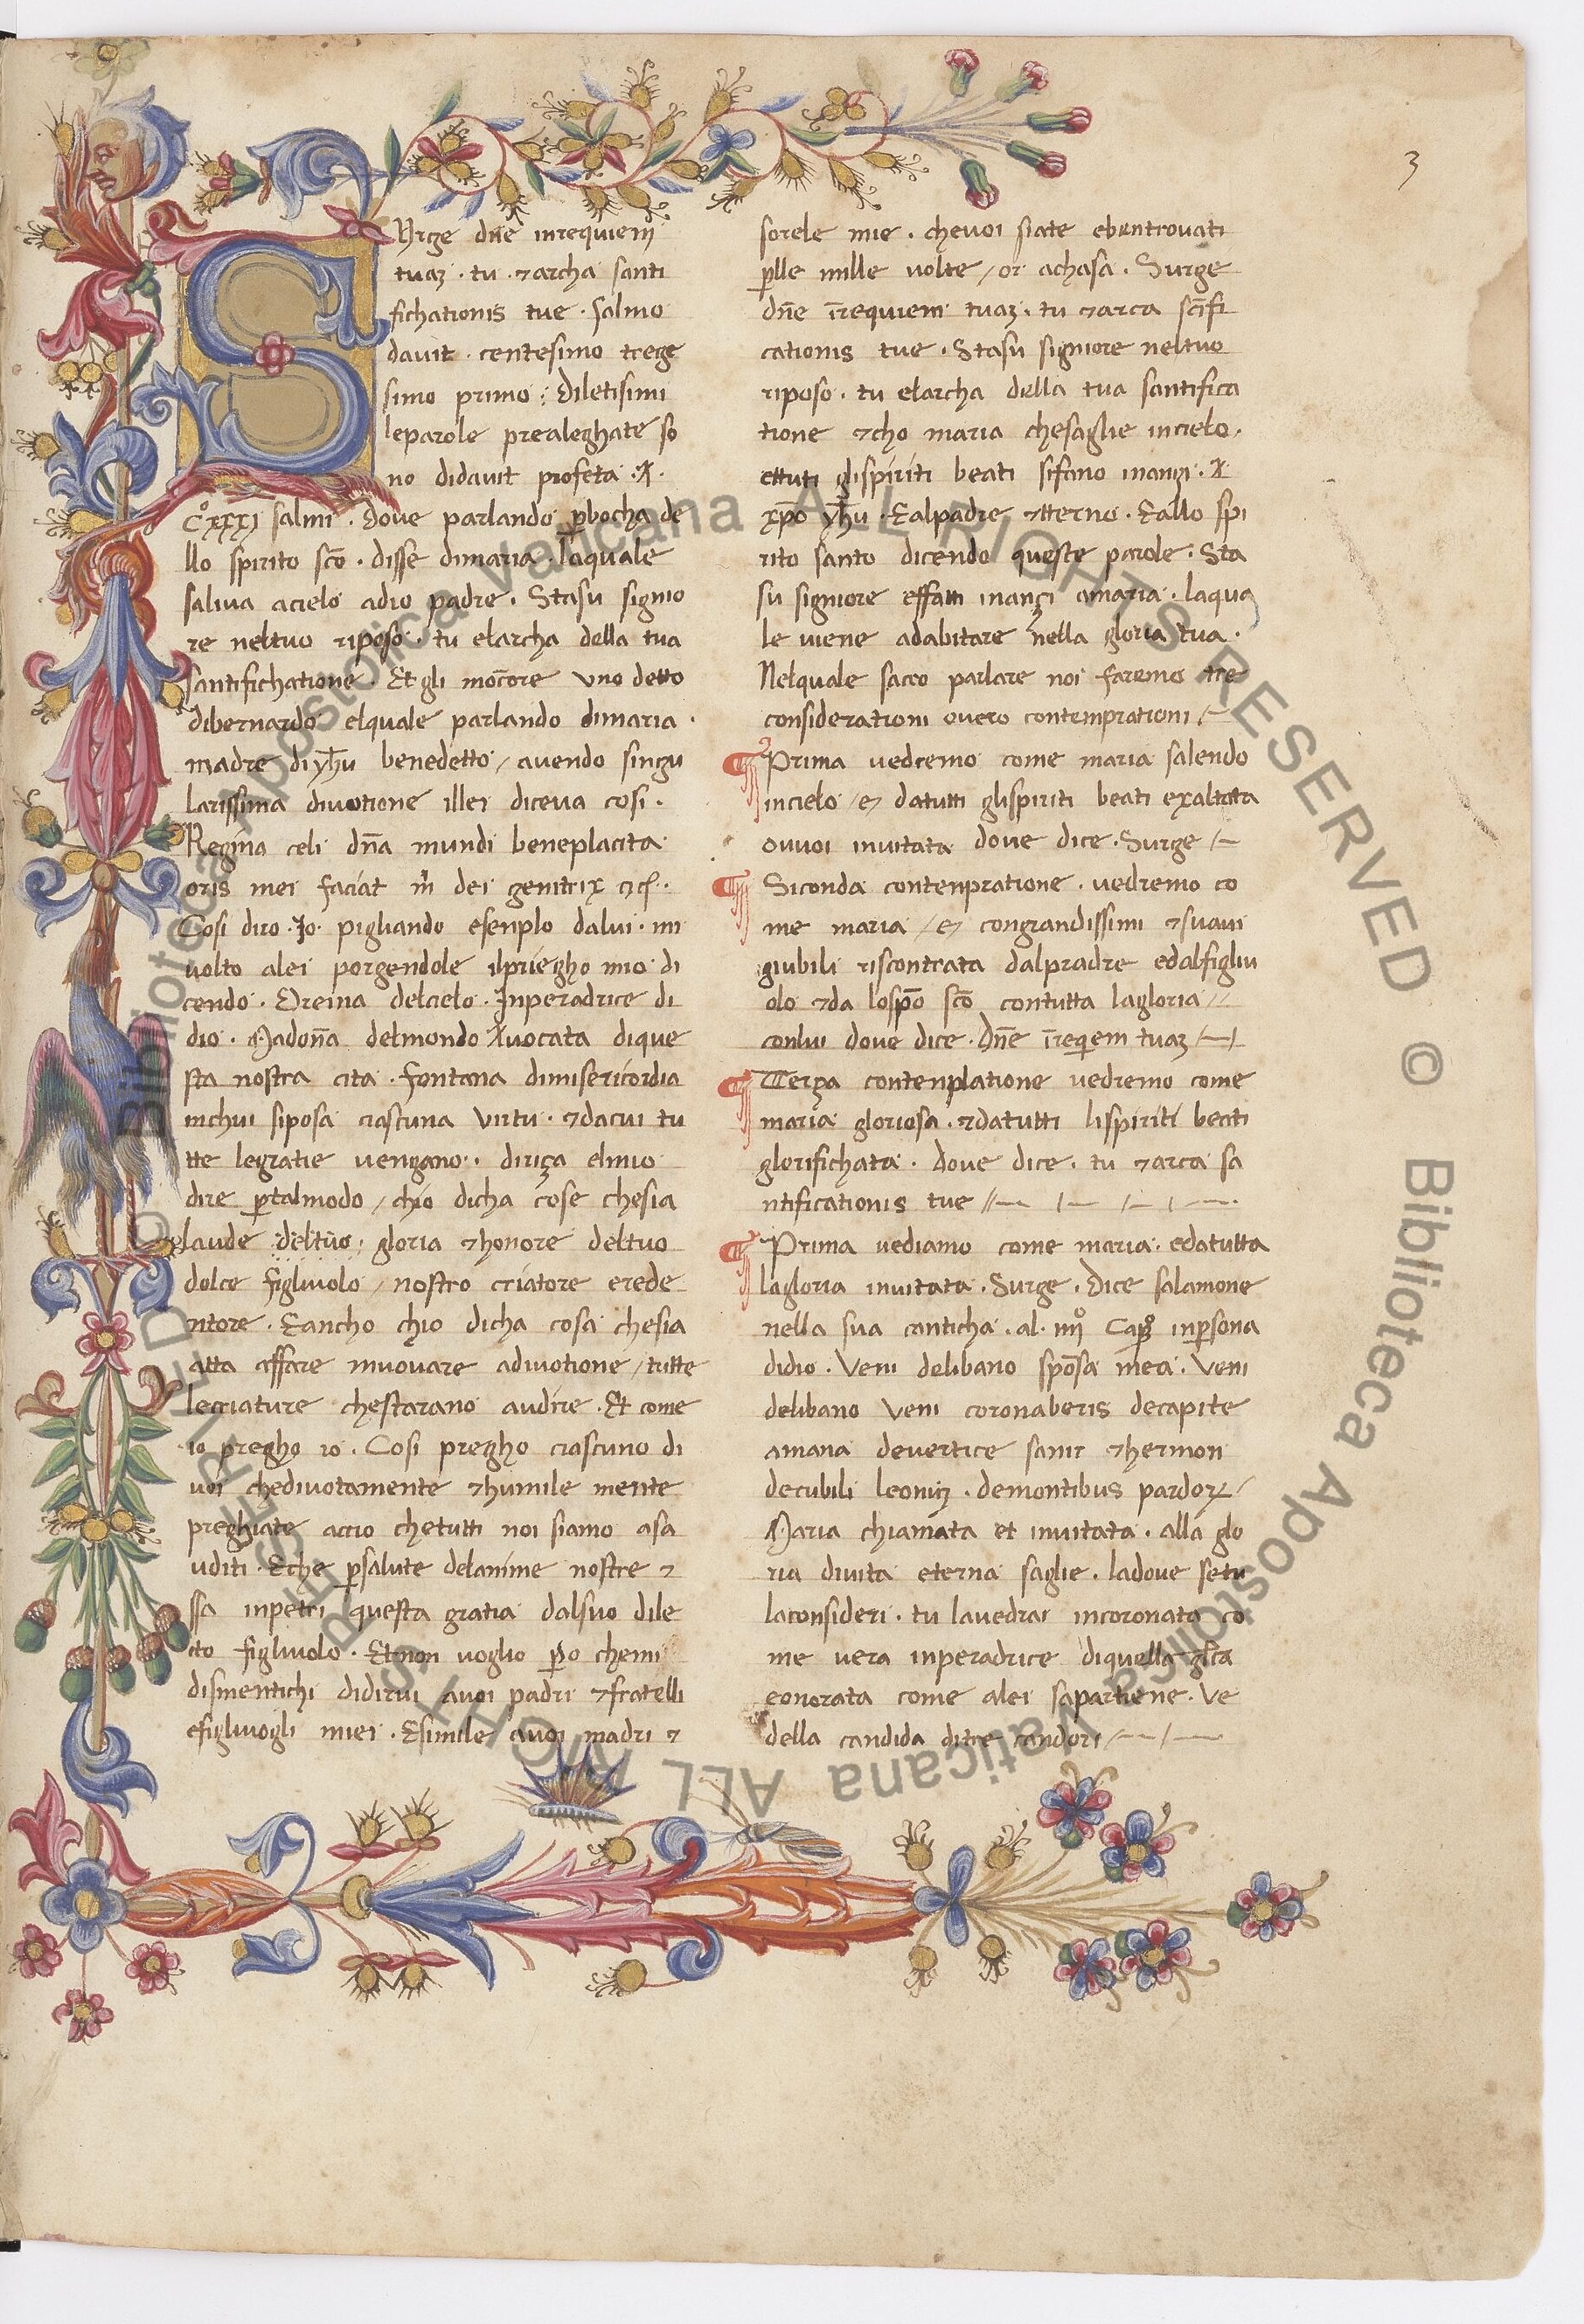 3
SUrge dn̄e inrequiem
tuaʒ · tu · ⁊archa santi
fichationis tue · salmo
davit · centesimo trege
simo primo : diletisimi
leparole prealeghate so
no didavit profeta · A ·
C°xxxj salmi · dove parlando ꝑbocha de
llo spirito sc̄o · disse dimaria · laquale
saliva acielo adio padre · Stasu signo
re neltuo riposo · tu elarcha della tua
santifichatione · Et gli moc̄ore uno detto
dibernardo elquale parlando dimaria ·
madre diyh̄u benedetto / avendo singu
larissima divotione illei diceva cosi ·
Regina celi dn̄a mundi beneplacita
oris mei faciat m̄ dei genitrix
Cosi diro · Io · pigliando esenplo dalui · mi
volto alei porgendole ilpriegho mio di
cendo · Oreina delcielo · Inperadrice di
dio · Madon̄a delmondo Avocata dique
sta nostra cita · fontana dimisericordia
inchui siposa ciascuna virtu · ⁊dacui tu
tte legratie vengano · diriça elmio
dire ꝑtalmodo / chio dicha cose chesia
laude deltuo : gloria ⁊honore deltuo
dolce figluiolo / nostro criatore erede
ntore · Eancho chio dicha cosa chesia
atta affare muovare adivotione / tutte
lecriature chestarano audire · Et come
io pregho io · Cosi pregho ciascuno di
voi chedivotamente ⁊humile mente
preghiate accio chetutti noi siamo asa
uditi · Eche ꝑsalute delanime nostre ⁊
ssa inpetri questa gratia dalsuo dile
cto figluiolo · Etnon voglio ꝑo chemi
dismentichi didirvi avoi padri ⁊fratelli
efigluogli miei · Esimile avoi madri ⁊
sorele mie · chevoi siate ebentrovati
ꝑlle mille volte / or achasa · Surge
dn̄e īrequiem tuaʒ · tu ⁊arca sc̄ifi
cationis tue · Stasu signiore neltuo
riposo · tu elarcha della tua santifica
tione ⁊cho maria chesaglie incielo ·
ettuti glispiriti beati sifano inanzi · A
xp̄o yh̄u · Ealpadre etterno · Eallo spi
rito santo dicendo queste parole : Sta
su signiore effatti inançi amaria · laqua
le viene adabitare nella gloria tua ·
Nelquale sacro parlare noi faremo tre
considerationi overo contemprationi /—
¶ Prima vedremo come maria salendo
incielo / e⁊ datutti glispiriti beati exaltata
ovvoi invitata dove dice · Surge /—
¶ Siconda contenpratione · vedremo co
me maria / e⁊ congrandissimi ⁊suavi
giubili riscontrata dalpradre edalfigliu
olo ⁊da losp̄o sc̄o contutta lagloria //
conlui dove dice · dn̄e īreqiem tuaʒ /—/
¶ Terça contenplatione vedremo come
maria gloriosa · ⁊datutti lispiriti beati
glorifichata · dove dice · tu ⁊arca sa
ntificationis tue //— /— /— / —·
¶ Prima vediamo come maria · edatutta
lagloria invitata · Surge · dice salamone
nella sua canticha · al · iiij° Cap° inꝑsona
didio · Veni delibano spōsa mea · Veni
delibano veni coronaberis decapite
amana devertice sanir ⁊hermon
decubili leonuʒ · demontibus pardoꝝ /
Maria chiamata et invitata · alla glo
ria divita eterna saglie · ladove setu
laconsideri · tu lavedrai incoronata co
me vera inperadrice diquella gl̄ia
eonorata come alei sapartiene · Ve
della candida ditre candori /—/—
© Biblioteca Apostolica Vaticana ALL RIGHTS RESERVED © Biblioteca Apostolica Vaticana ALL RIGHTS RESERVED